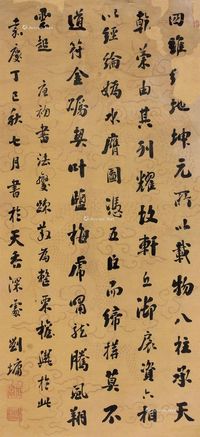 四維紀地坤元所以載物八柱承天
乾榮由其列耀故軒丘御扆資六相
以經綸媯水膺圖憑五臣而締構莫不
道符金礪契叶鹽梅虎嘯龍騰風翔
雲起 唐初書法變疏散為整栗權輿於此
嘉慶丁巳秋七月書於天香深處劉墉